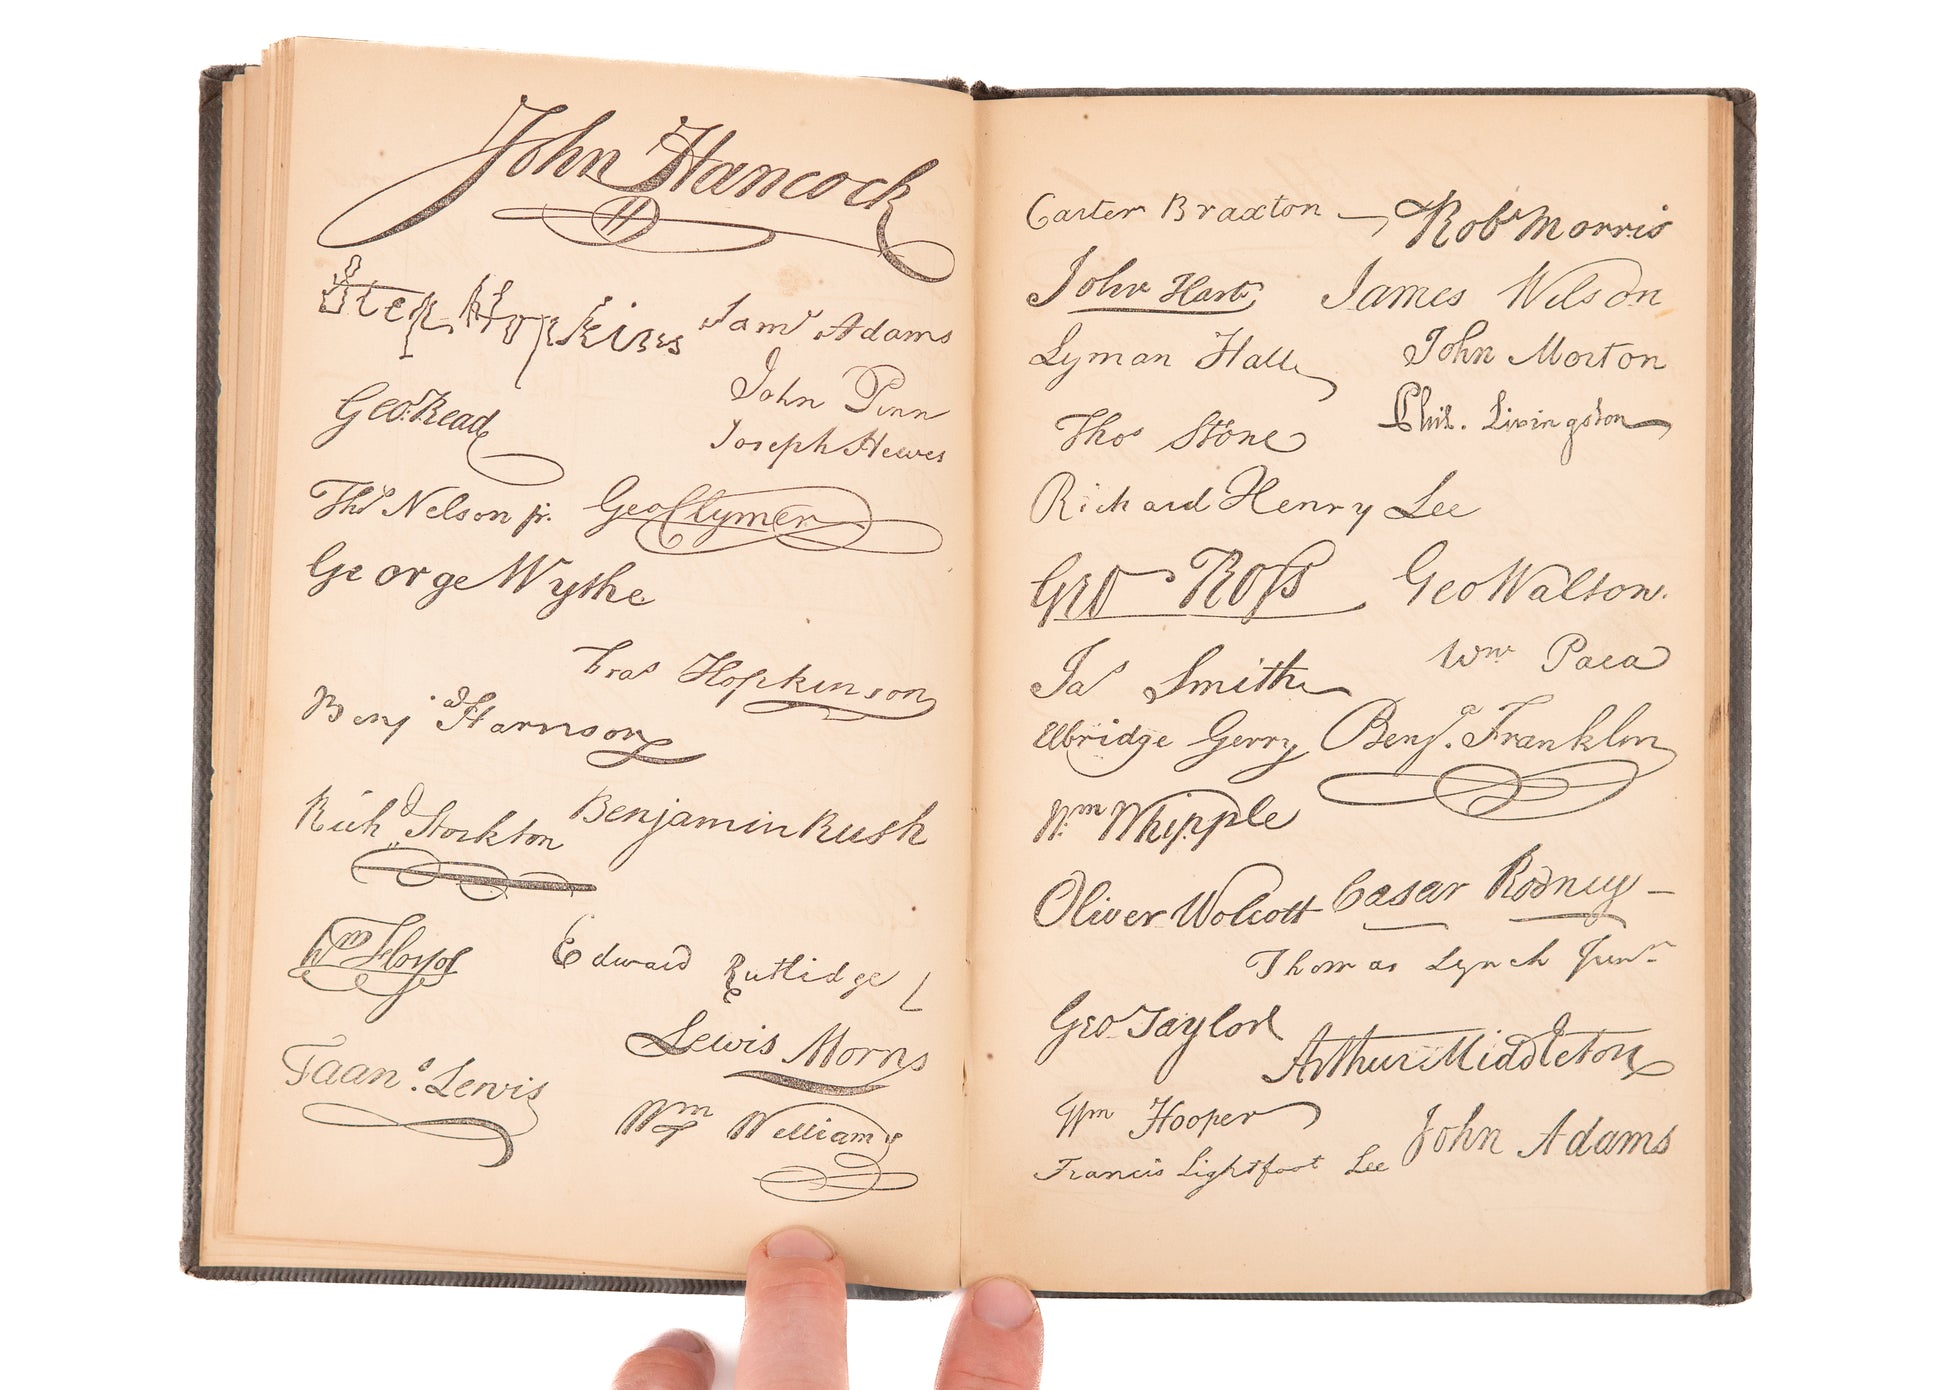 John Hancock
H
Step. Hopkins Samˡ Adams
John Penn
Geo: Read
Joseph Hewes
Thoˢ Nelson jr. Geo Clymer
George Wythe
Fraˢ Hopkinson
Benjᵃ Harrison
Richᵈ Stockton Benjamin Rush
Wᵐ Floyd Edward Rutlidge
Lewis Morris
Fraanˢ. Lewis
Wᵐ Williams
Carter Braxton Robᵗ Morris
John Hart James Wilson
Lyman Hall John Morton
Thoˢ Stone Phil. Livingston
Richard Henry Lee
Geo Roſs Geo Walton.
Jaˢ Smith Wᵐ Paca
Elbridge Gerry Benjᵃ. Franklin
Wᵐ Whipple
Oliver Wolcott Casar Rodney
Thomas Lynch Junʳ
Geo Taylor
Arthur Middleton
Wᵐ Hooper John Adams
Francis Lightfoot Lee